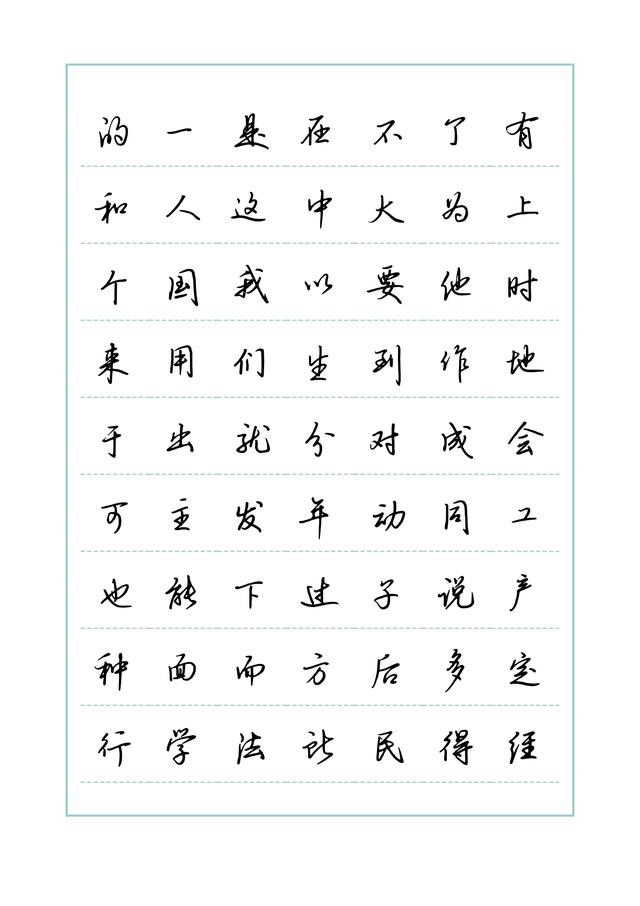 的一是在不了有
和人这中大为上
个国我以要他时
来用们生到作地
于出就分对成会
可主发年动同工
也能下过子说产
种面而方后多定
行学法所民得经